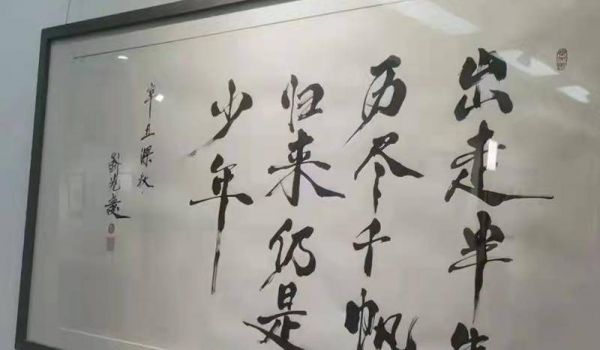 出走半生
历尽千帆
归来仍是
少年
辛丑深秋